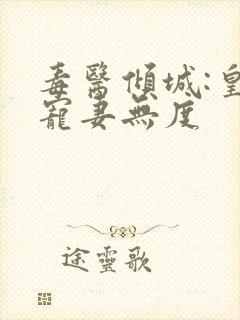 毒醫傾城:皇
寵妻無度
途靈歌